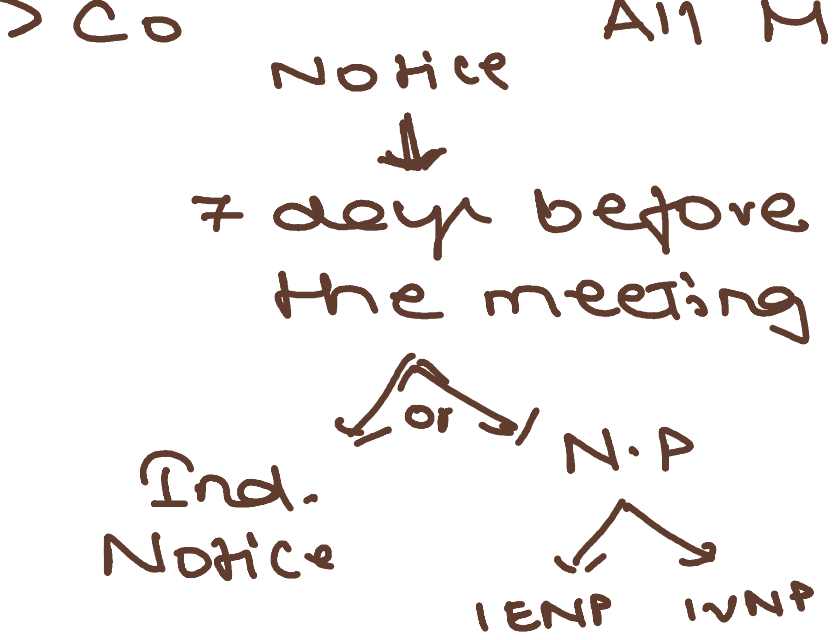 > Co All M
Notice
7 days before
the meeting
or
Ind. N.P
Notice
1ENP 1VNP